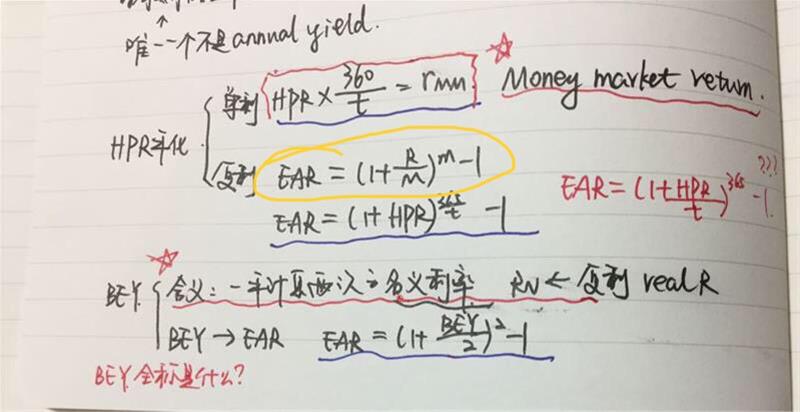 ↑
唯一一个不是annual yield.
HPR年化 { 单利 HPR × 360/t = rmm. ☆ Money market return.
复利 EAR = (1+R/M)^m -1
EAR = (1+HPR)^365/t -1
EAR = (1+HPR/t)^365 -1. ???
BEY { ☆ 含义: 一年计息两次之名义利率 RN ← 复利 real R
BEY → EAR EAR = (1+BEY/2)^2 -1
BEY全称是什么?